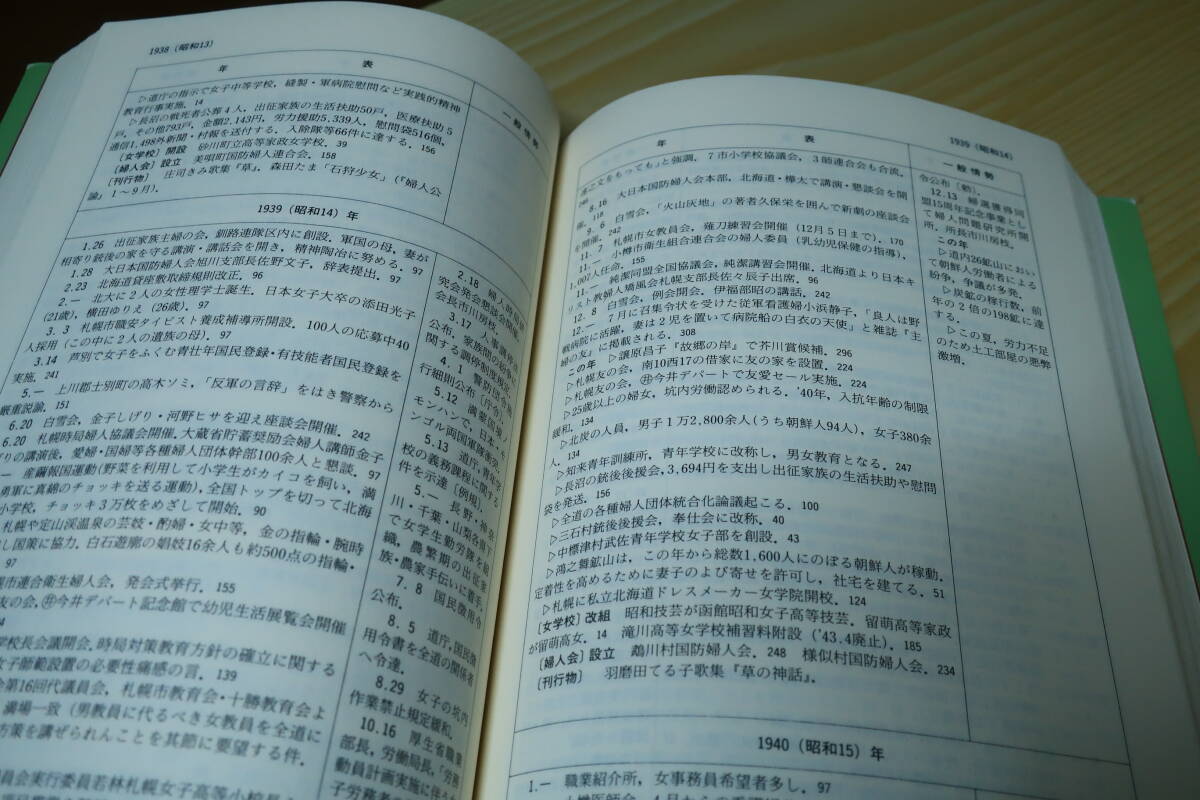 1938（昭和13）
年　表
一般情勢
▷道庁の指示で女子中等学校，縫製・軍病院慰問など実践的精神
教育行事実施．14
▷長沼の戦死者公葬4人，出征家族の生活扶助50戸，医療扶助5
戸，その他793戸，金額2,143円，労力援助5,339人，慰問袋516個，
通信1,498外新聞・村報を送付する．入除隊等66件に達する．156
〔女学校〕開設　砂川町立高等家政女学校．39
〔婦人会〕設立　美唄町国防婦人連合会．158
〔刊行物〕庄司きみ歌集『草』，森田たま「石狩少女」（『婦人公
論』1～9月）．
1939（昭和14）年
1.26　出征家族主婦の会，釧路連隊区内に創設．軍国の母，妻が
相寄り銃後の家を守る講演・講話会を開き，精神陶冶に努める．97
1.28　大日本国防婦人会旭川支部長佐野文子，辞表提出．97
2.23　北海道貸座敷取締規則改正．96
2.－　北大に2人の女性理学士誕生．日本女子大卒の添田光子
(21歳)，横田ゆりえ(26歳)．97
3. 3　札幌市職安タイピスト養成補導所開設．100人の応募中40
人採用（この中に2人の遺族の母）．97
3.14　芦別で女子をふくむ青壮年国民登録・有技能者国民登録を
実施．241
5.－　上川郡士別町の高木ソミ，「反軍の言辞」をはき警察から
厳重説諭．151
6.20　白雪会，金子しげり・河野ヒサを迎え座談会開催．242
6.20　札幌時局婦人協議会開催．大蔵省貯蓄奨励会婦人講師金子
りの講演後，愛婦・国婦等各種婦人団体幹部100余人と懇談．97
－　産繭報国運動（野菜を利用して小学生がカイコを飼い，満
勇軍に真綿のチョッキを送る運動），全国トップを切って北海
小学校，チョッキ3万枚をめざして開始．90
札幌や定山渓温泉の芸妓・酌婦・女中等，金の指輪・腕時
し国策に協力．白石遊廓の娼妓16余人も約500点の指輪・
97
市連合衛生婦人会，発会式挙行．155
友の会，㊄今井デパート記念館で幼児生活展覧会開催
学校長会議開会．時局対策教育方針の確立に関する
女子師範設置の必要性痛感の言．139
会第16回代議員会，札幌市教育会・十勝教育会よ
満場一致（男教員に代るべき女教員を全道に
方策を講ぜられんことを其筋に要望する件．
員会実行委員若林札幌女子高等小校長
2.18　婦人時局研
究会発会
会長市川房枝．
3.17　人事調停法
公布．家族間の紛争に
関する調停制度規定．
4. 1　警防団令施
行細則公布〔庁令〕．
5.12　満蒙国境ノ
モンハンで，日本・モ
ンゴル両国軍隊衝突．
5.13　道庁，青年学
校の義務課程に関する
件を示達〔例規〕．
5.－　長野・神奈
川・千葉・山梨各県下
で女子生勤労隊を組
織，農繁期の出征家
族・農家手伝いに着手．
7. 8　国民徴用令
公布．
8. 5　道庁，国民徴
用令書を全道の関係者
へ令達．
8.29　女子の坑内
作業禁止規定緩和．
10.16　厚生省職業
部長，労働局長，「労務
動員計画実施に伴う
子労務者の
年　表
1939（昭和14）
一般情勢
進之文をもっても」と強調，7市小学校協議会，3師連合会も合流．
8.16　大日本国防婦人会本部，北海道・樺太で講演・懇談会を開
催．118
9. 6　白雪会，「火山灰地」の著者久保栄を囲んで新劇の座談会
を開催．242
11. 7　札幌市女教員会，薙刀練習会開催（12月5日まで）．170
11.－　小樽市衛生組合連合会の婦人委員（乳幼児保健の指導），
1,00人任命．155
11.－　純潔同盟全国協議会，純潔講習会開催．北海道より日本キ
リスト教婦人矯風会札幌支部長佐々辰子出席．96
12. 8　白雪会，例会開会．伊福部昭の講話．242
12.－　7月に召集令状を受けた従軍看護婦小浜静子，「良人は野
戦病院に活躍，妻は2児を置いて病院船の白衣の天使」と雑誌『主
婦の友』に掲載される．308
この年　▷譲原昌子『故郷の岸』で芥川賞候補．296
▷札幌友の会，南10西17の借家に友の家を設置．224
▷札幌友の会，㊄今井デパートで友愛セール実施．224
▷25歳以上の婦女，坑内労働認められる．'40年，入抗年齢の制限
緩和．134
▷北炭の人員，男子1万2,800余人(うち朝鮮人94人)，女子380余
人．134
▷知来青年訓練所，青年学校に改称し，男女教育となる．247
▷長沼の銃後後援会，3,694円を支出し出征家族の生活扶助や慰問
袋を発送．156
▷全道の各種婦人団体統合化論議起こる．100
▷三石村銃後後援会，奉仕会に改称．40
▷中標津村武佐青年学校女子部を創設．43
▷鴻之舞鉱山は，この年から総数1,600人にのぼる朝鮮人が稼動．
定着性を高めるために妻子のよび寄せを許可し，社宅を建てる．51
▷札幌に私立北海道ドレスメーカー女学院開校．124
〔女学校〕改組　昭和技芸が函館昭和女子高等技芸．留萌高等家政
が留萌高女．14　滝川高等女学校補習科附設（'43.4廃止）．185
〔婦人会〕設立　鵡川村国防婦人会．248　様似村国防婦人会．234
〔刊行物〕　羽磨田てる子歌集『草の神話』．
令公布〔勅〕．
12.13　婦選獲得同
盟15周年記念事業とし
て婦人問題研究所開
所，所長市川房枝．
この年
▷道内26鉱山におい
て朝鮮人労働者による
紛争，争議が多発．
▷炭鉱の稼行数，前
年の2倍の198鉱に達
する．
▷この夏，労力不足
のため土工部屋の悪弊
激増．
1940（昭和15）年
1.－　職業紹介所，女事務員希望者多し．97